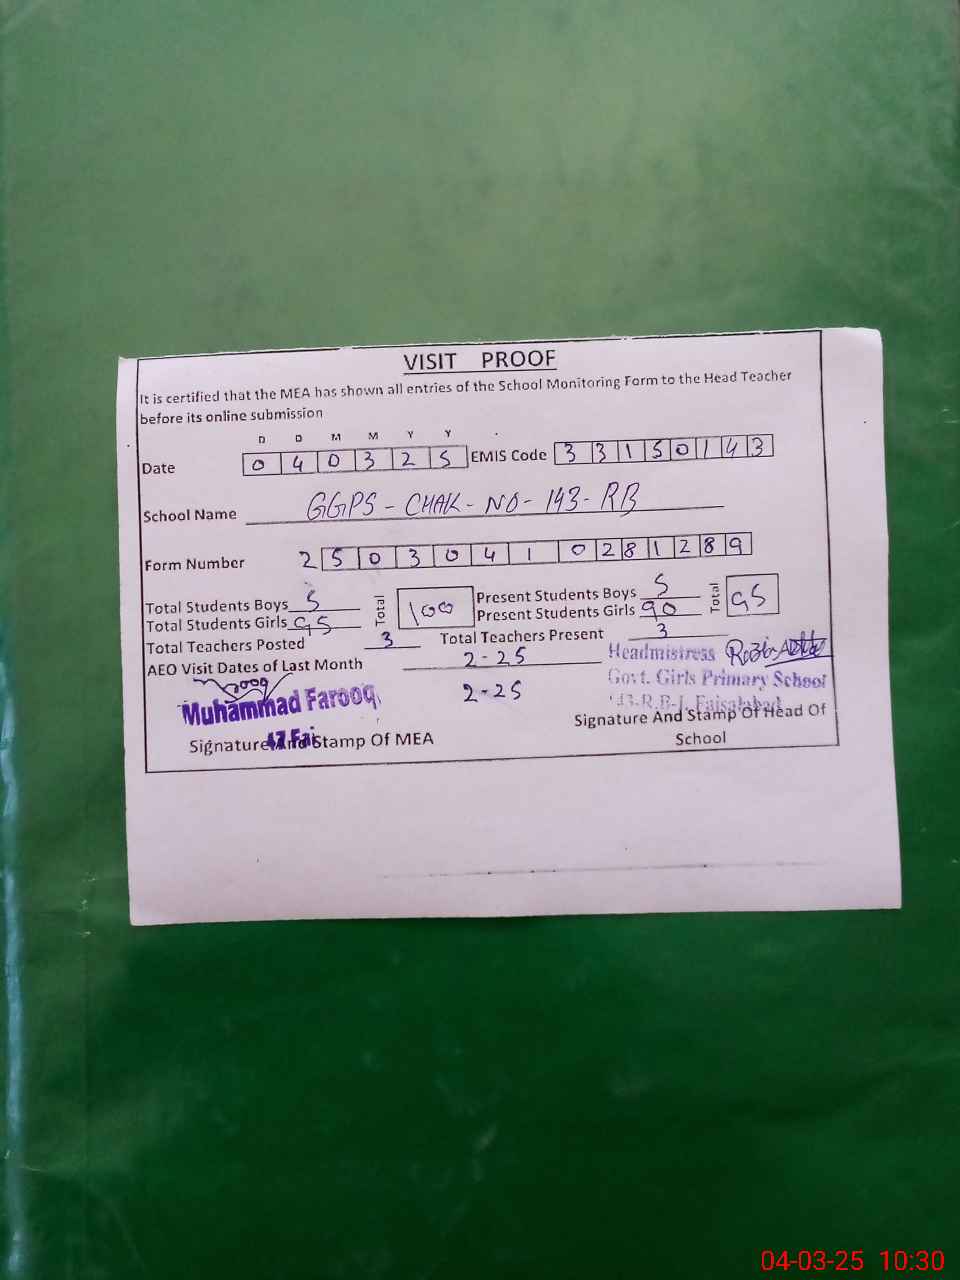 VISIT PROOF
It is certified that the MEA has shown all entries of the School Monitoring Form to the Head Teacher
before its online submission
D D M M Y Y
Date 0 4 0 3 2 5 EMIS Code 3 3 1 5 0 1 4 3
School Name GGPS - CHAK - NO - 143 - RB
Form Number 2 5 0 3 0 4 1 0 28 1 2 8 9
Total Students Boys 5 Total 100 Present Students Boys 5 Total 95
Total Students Girls 95 Present Students Girls 90
Total Teachers Posted 3 Total Teachers Present 3
AEO Visit Dates of Last Month 2-25
2-25
Headmistress
Govt. Girls Primary School
R.B-I, Faisalabad
Muhammad Farooq
47 Fai
Signature And Stamp Of MEA
Signature And Stamp Of Head Of
School
04-03-25 10:30